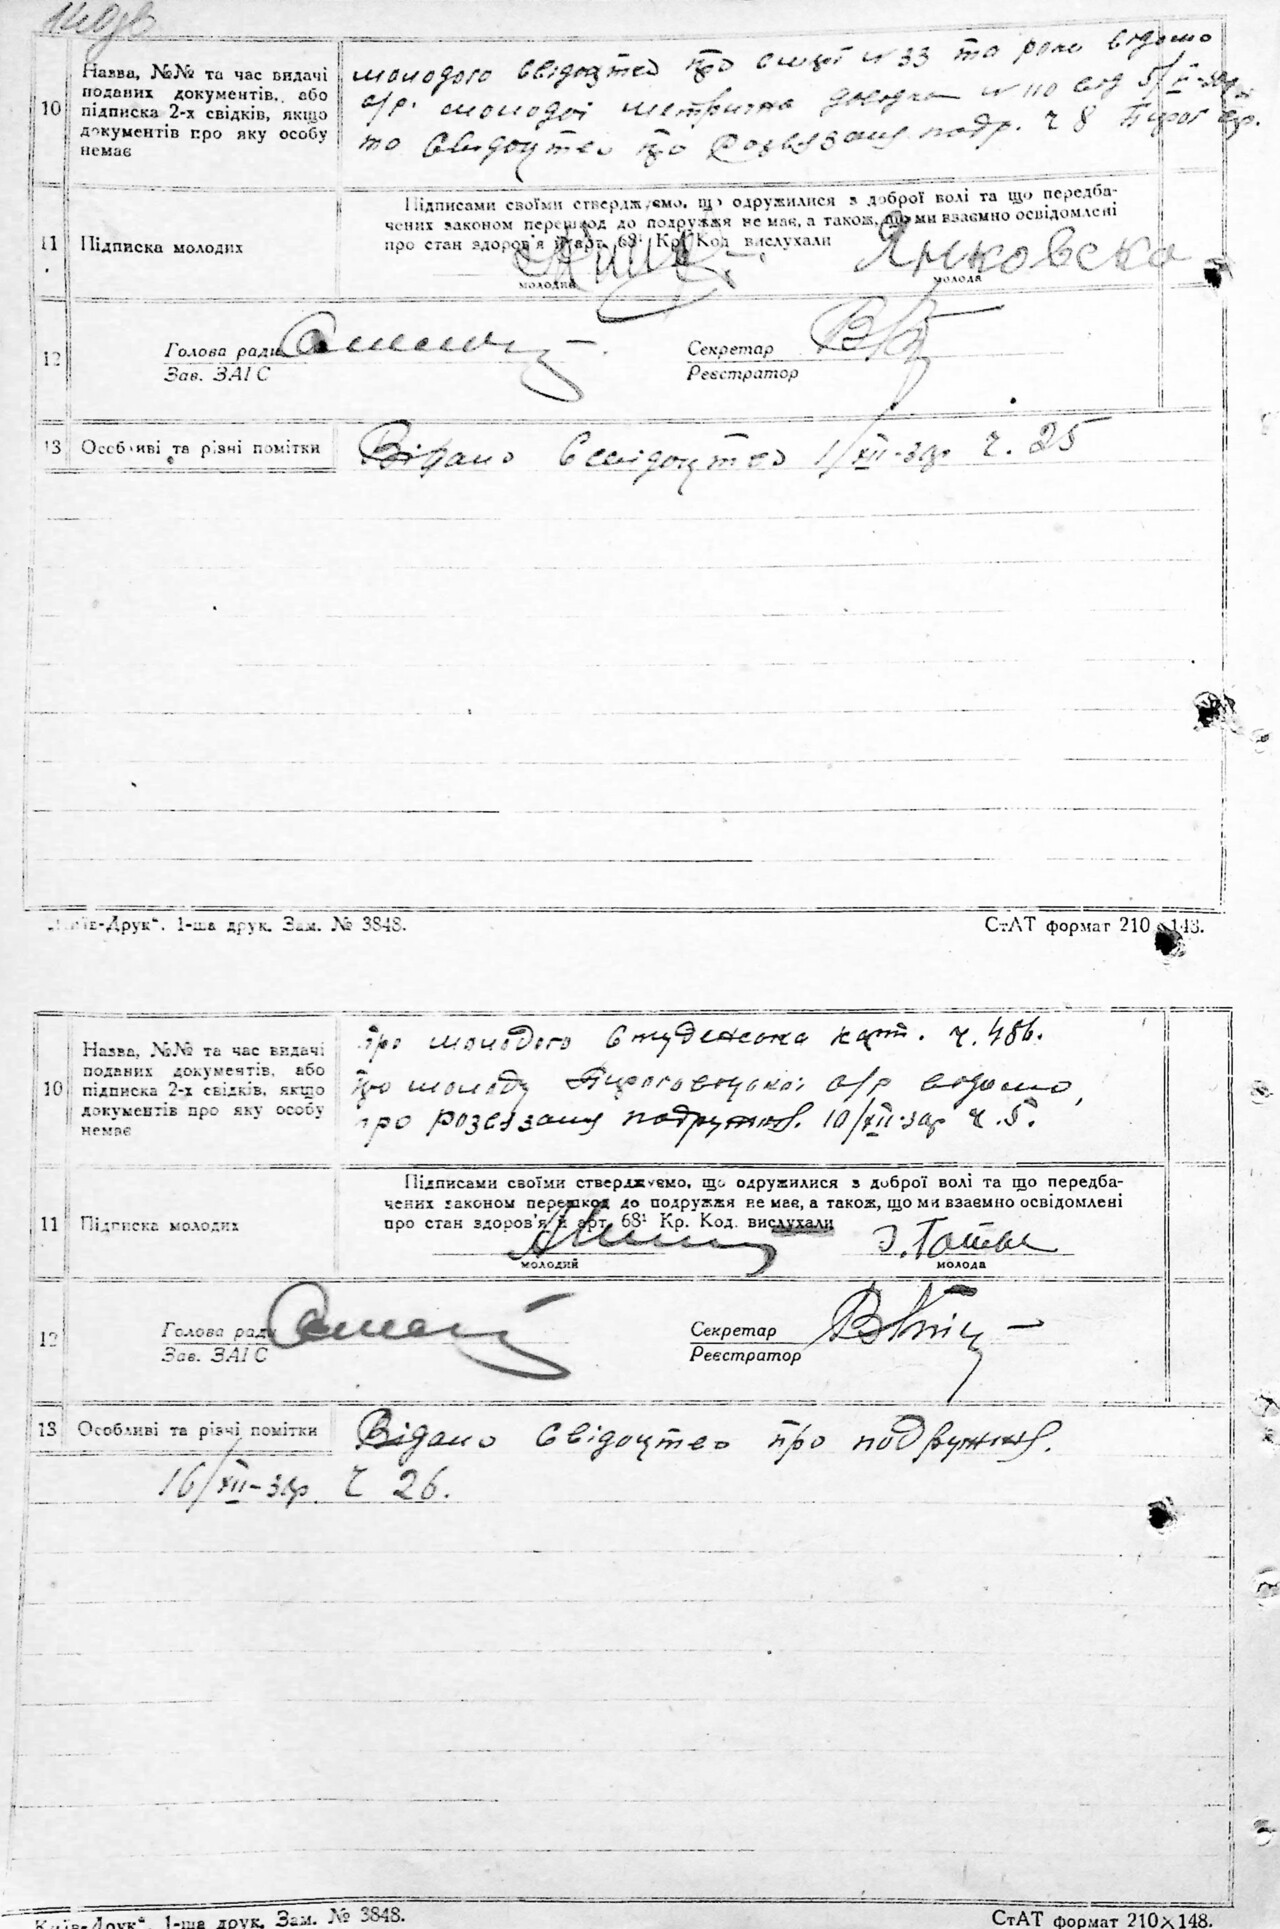 10
Назва, №№ та час видачі
поданих документів, або
підписка 2-х свідків, якщо
документів про яку особу
немає
молодого свідоцтво про смерті №33 та
молодої метрична №110 від 5/
то свідоцтво про розвязання подр. ч 8
11
Підписка молодих
Підписами своїми стверджуємо, що одружилися з доброї волі та що передба-
чених законом перешкод до подружжя не має, а також, що ми взаємно освідомлені
про стан здоров'я й арт. 68¹ Кр. Код вислухали
Янковска
молодий
молода
12
Голова ради
Зав. ЗАГС
Секретар
Реєстратор
13
Особливі та різні помітки
Відано Свідоцтво 1/XII-32р ч. 25
„Київ-Друк“. 1-ша друк. Зам. № 3848.
СтАТ формат 210×148.
10
Назва, №№ та час видачі
поданих документів, або
підписка 2-х свідків, якщо
документів про яку особу
немає
про молодого студенська карт. ч. 486.
про молоду с/р відомо,
про розвязаня подружжя. 10/XII-32р ч. 5.
11
Підписка молодих
Підписами своїми стверджуємо, що одружилися з доброї волі та що передба-
чених законом перешкод до подружжя не має, а також, що ми взаємно освідомлені
про стан здоров'я й арт. 68¹ Кр. Код. вислухали
молодий
молода
12
Голова ради
Зав. ЗАГС
Секретар
Реєстратор
13
Особливі та різні помітки
Відано свідоцтво про подружжя.
16/XII-32р ч 26.
Київ-Друк“. 1-ша друк. Зам. № 3848.
СтАТ формат 210×148.